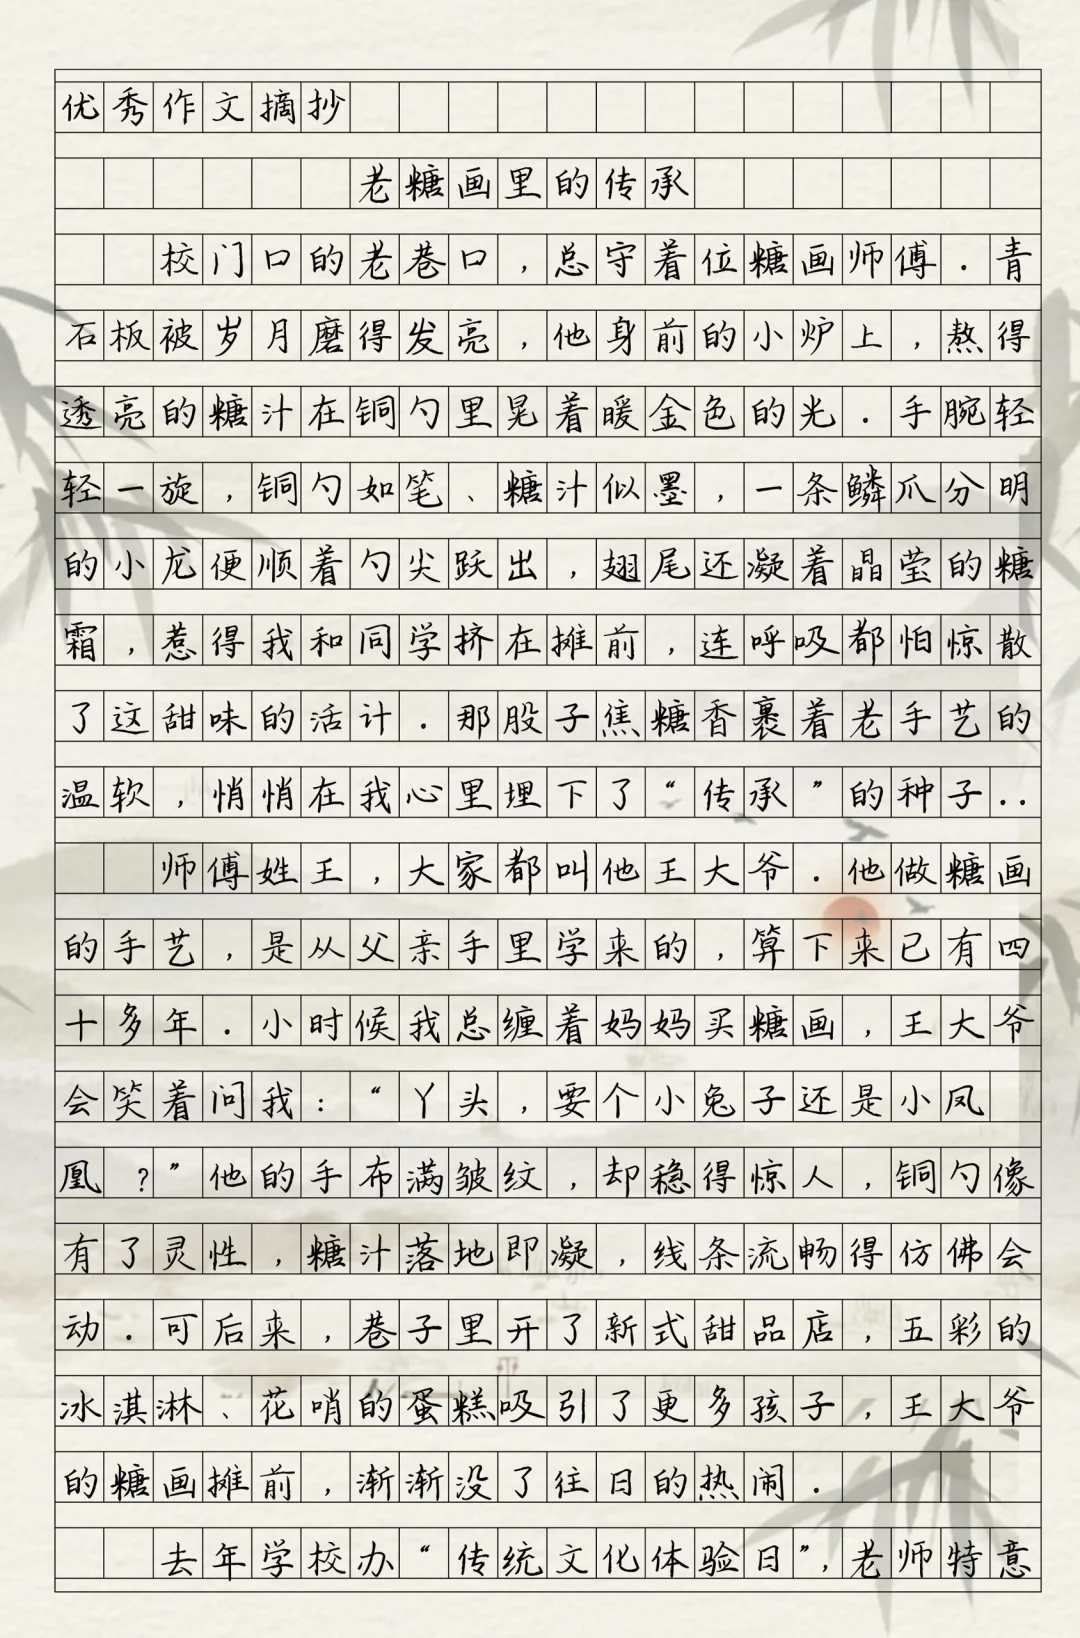 优秀作文摘抄
老糖画里的传承
校门口的老巷口,总守着位糖画师傅.青
石板被岁月磨得发亮,他身前的小炉上,熬得
透亮的糖汁在铜勺里晃着暖金色的光.手腕轻
轻一旋,铜勺如笔、糖汁似墨,一条鳞爪分明
的小龙便顺着勺尖跃出,翅尾还凝着晶莹的糖
霜,惹得我和同学挤在摊前,连呼吸都怕惊散
了这甜味的活计.那股子焦糖香裹着老手艺的
温软,悄悄在我心里埋下了“传承”的种子..
师傅姓王,大家都叫他王大爷.他做糖画
的手艺,是从父亲手里学来的,算下来已有四
十多年.小时候我总缠着妈妈买糖画,王大爷
会笑着问我:“丫头,要个小兔子还是小凤
凰?”他的手布满皱纹,却稳得惊人,铜勺像
有了灵性,糖汁落地即凝,线条流畅得仿佛会
动.可后来,巷子里开了新式甜品店,五彩的
冰淇淋、花哨的蛋糕吸引了更多孩子,王大爷
的糖画摊前,渐渐没了往日的热闹.
去年学校办“传统文化体验日”,老师特意